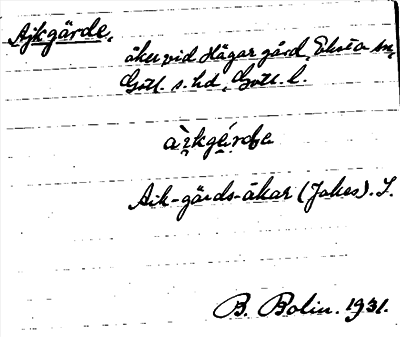 Ajkgärde,
åker vid Hägar gård, Eksta sn,
Gotl. s. hd, Gotl. l.
Aik-gärds-åkar (Jakes). L.
B. Bolin. 1931.